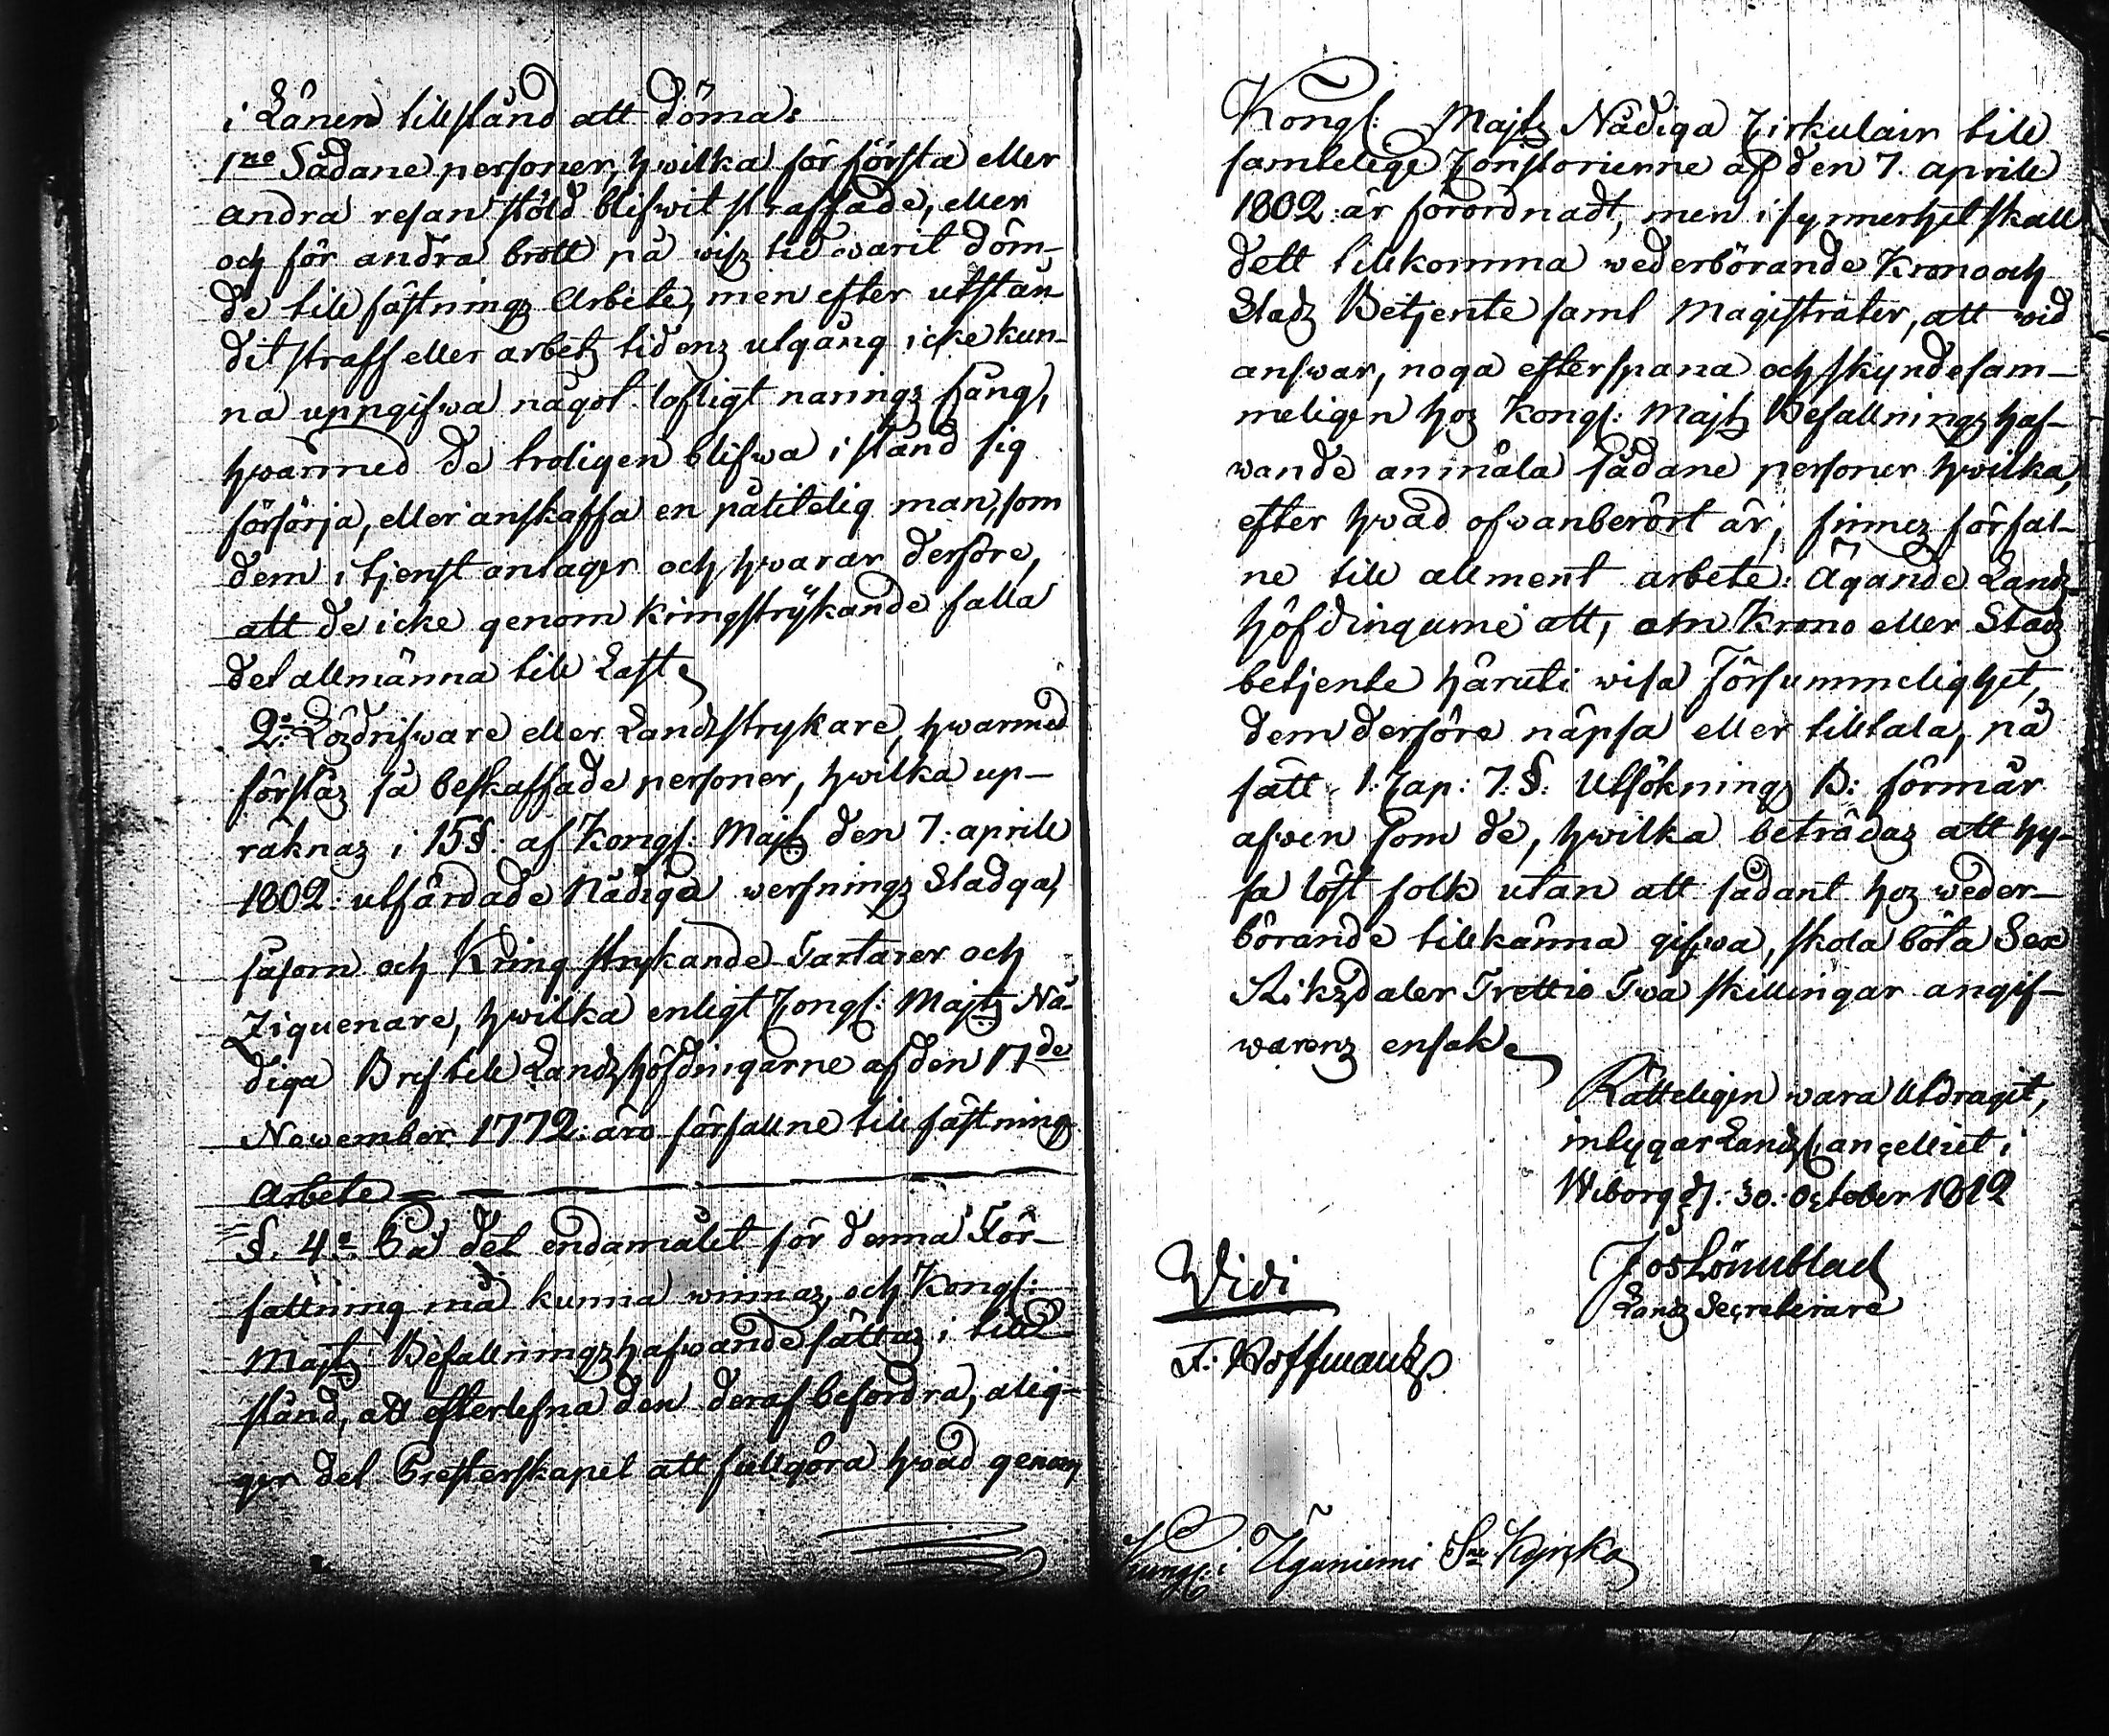 i Länen tillstånd att döma:
1mo Sådane personer, hwilka för första eller
andra resan stöld blifwit straffade, eller
och för andra brott på wisz tid warit döm-
de till fästnings Arbete, men efter utstån
dit straff eller arbets tidens utgång icke kun-
na uppgifwa något lofligt närings fång,
hwarmed de troligen blifwa i stånd sig
försörja, eller anskaffa en pålitelig man, som
dem i tjenst antager och swarar derföre,
att de icke genom kringstrykande falla
det allmänna till Last,
2o Lösdrifware eller Landstrykare, hwarmed
förstås så beskaffade personer, hwilka up-
räknas i 15§: af Kongl: Majts den 7: aprill
1802: utfärdade Nådiga werfnings Stadga,
såsom och Kringstrykande Tartarer och
Ziguenare, hwilka enligt Kongl: Majts Nå-
diga Bref till Landshöfdingarne af den 17de
November 1772: äro förfallne till fästnings
Arbete
§. 4o På det endamålet för denna För-
fattning må kunna winnas, och Kongl:
Majts Befallningshafwande sättas i till-
stånd, att efterlefna den deraf befordra, ålig-
ger det Presterskapet att fullgöra hwad genom
Kongl: Majts Nådiga Zirkulair till
samtelige Consistorierne af den 7. aprill
1802: är förordnadt, men i synnerhet skall
dett tillkomma wederbörande Krono och
Stads Betjente samt Magistrater, att wid
answar, noga efterspana och skyndesam-
meligen hos Kongl: Majts Befallningshaf-
wande anmäla sådane personer hwilka,
efter hwad ofwanberört är, finnes förfal-
ne till allment arbete: Ägande Lands-
höfdingarne att, om Krono eller Stads
betjente häruti wisa Försummelighet,
dem derföre näpsa eller tilltala, på
sätt 1: Cap: 7: §: Utsöknings B: förmår
äfwen som de, hwilka beträdas att hy-
sa löst folk utan att sådant hos weder-
börande tillkänna gifwa, skola böta Sex
Riksdaler Trettio Twå skillingar angif-
warens ensak.
Rätteligen wara Utdragit,
intygar Landscancelliet i
Wiborg d: 30: October 1812
Jos Lönnblad
Lands Secreterare
Vidi
F: Hoffmank
i Uguniemi Sn Kyrka